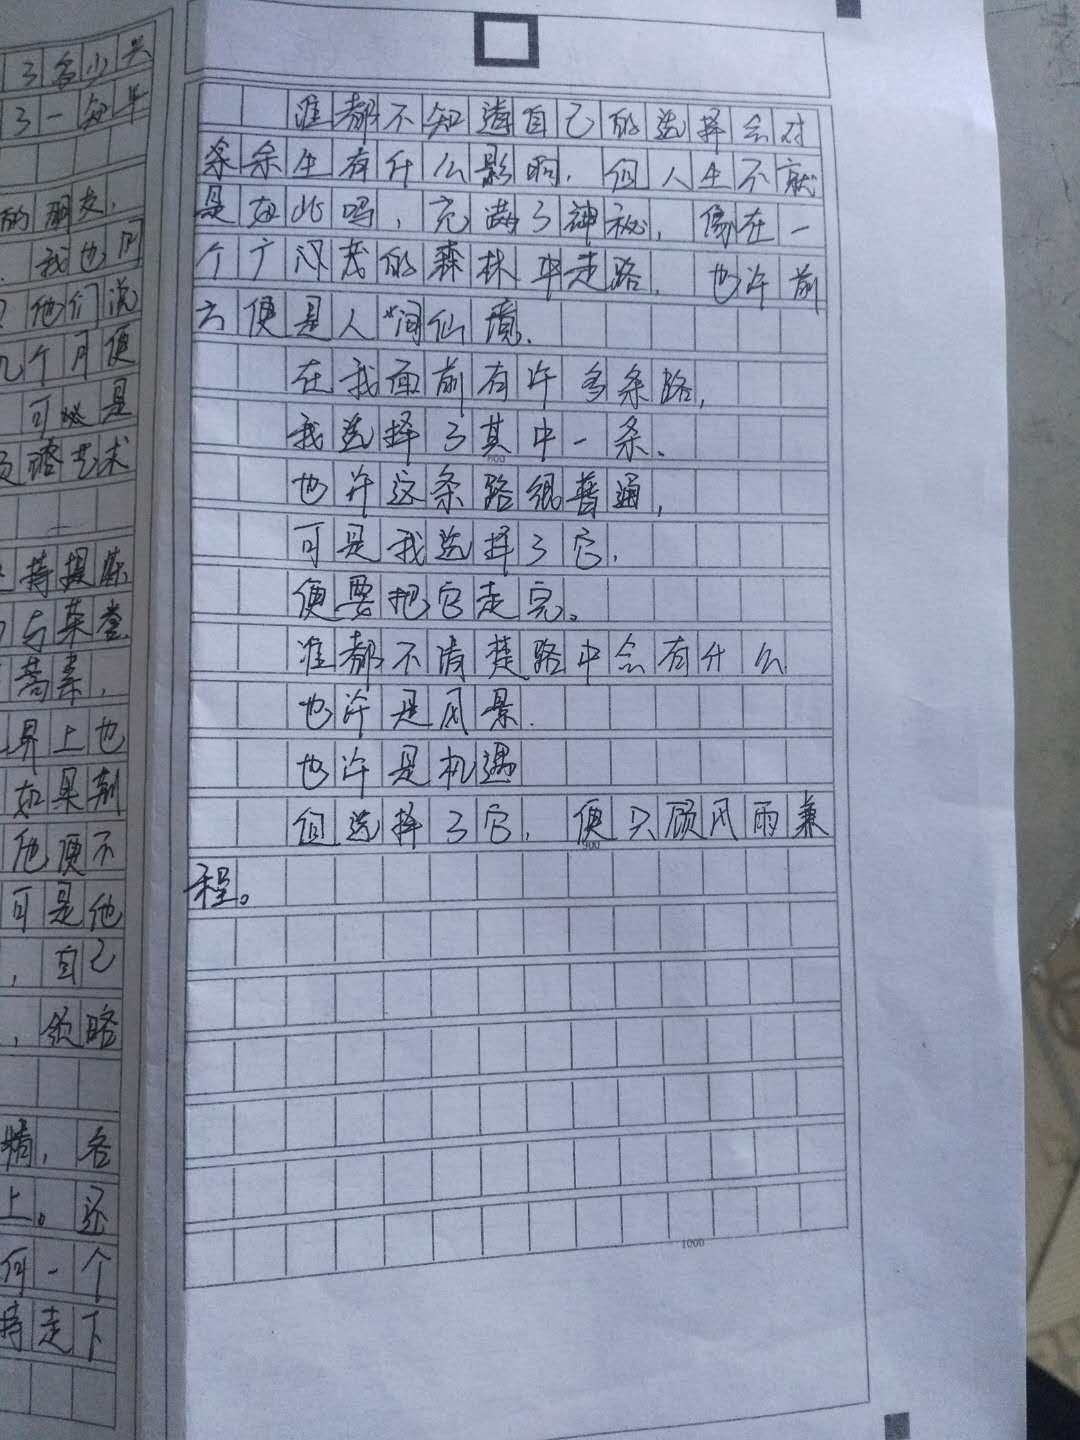 了名小兴
了一知半
的朋友，
我也问
他们说
几个月便
可必是
艺术
持提炼
与菜
荡素，
界上也
如果荆
他便不
可是他
，自己
，领略
情，各
上。还
何一个
持走下
谁都不知道自己的选择会对
余生有什么影响，但人生不就
是如此吗，充满了神秘，像在一
个广茂的森林中走路，也许前
方便是人间仙境。
在我面前有许多条路，
我选择了其中一条、
600
也许这条路很普通，
可是我选择了它，
便要把它走完。
谁都不清楚路中会有什么
也许是风景.
也许是机遇
但选择了它，便只顾风雨兼
900
程。
1000